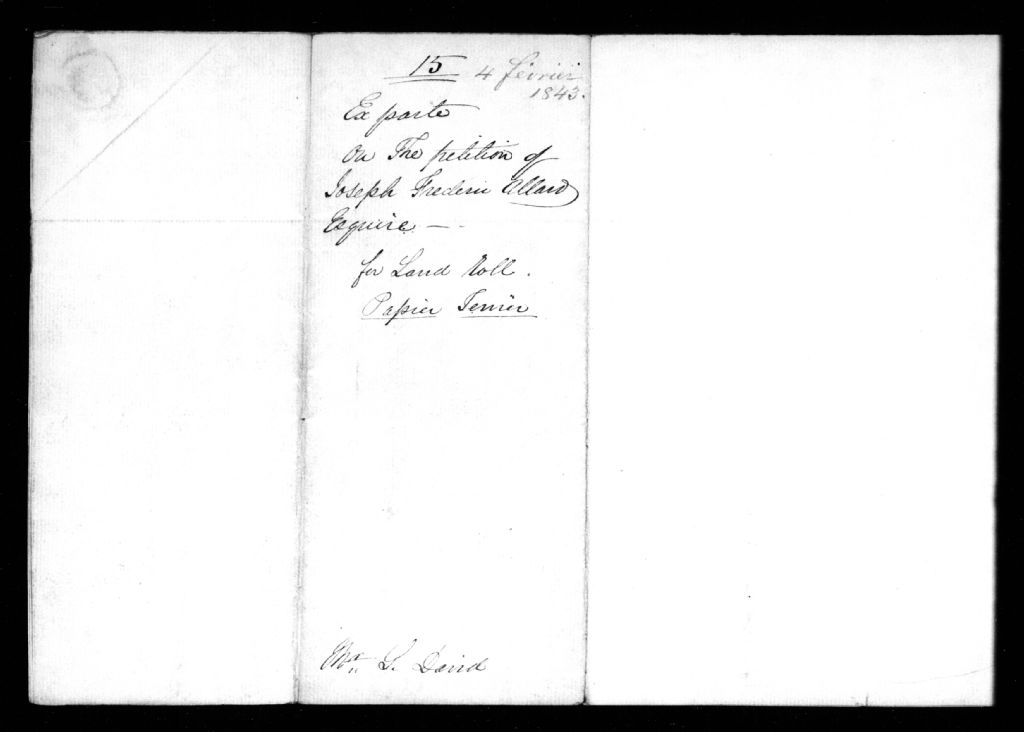 15
4 février
1843.
Ex parte
On The petition of
Joseph Frederic Allard
Esquire —
for Land Roll.
Papier Terrier
S. David